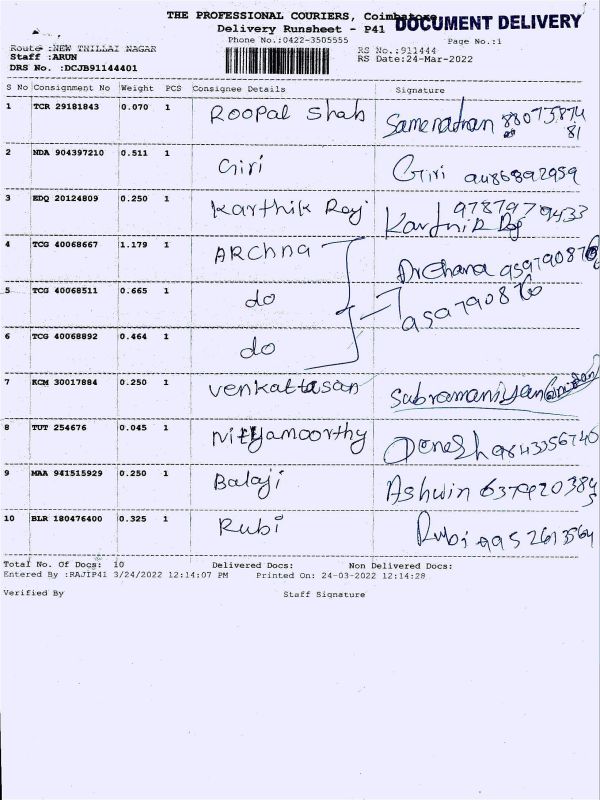 THE PROFESSIONAL COURIERS, Coimbatore
DOCUMENT DELIVERY
Delivery Runsheet - P41
Phone No.:0422-3505555
Page No.:1
Route :NEW THILLAI NAGAR
RS No.:911444
Staff :ARUN
RS Date:24-Mar-2022
DRS No. :DCJB91144401
S No Consignment No Weight PCS Consignee Details Signature
1 TCR 29181843 0.070 1 Roopal Shah 8807587481
2 NDA 904397210 0.511 1 Giri Giri 9486892959
3 EDQ 20124809 0.250 1 Karthik Raj Karthik Raj 9787979433
4 TCG 40068667 1.179 1 ARchna
5 TCG 40068511 0.665 1 do
6 TCG 40068892 0.464 1 do
7 KCM 30017884 0.250 1 Venkattasan Subramaniyan
8 TUT 254676 0.045 1 Nithyamoorthy 9843356740
9 MAA 941515929 0.250 1 Balaji Ashwin 6379920384
5
10 BLR 180476400 0.325 1 Rubi Rubi 9952613564
Total No. Of Docs: 10 Delivered Docs: Non Delivered Docs:
Entered By :RAJIP41 3/24/2022 12:14:07 PM Printed On: 24-03-2022 12:14:28
Verified By Staff Signature